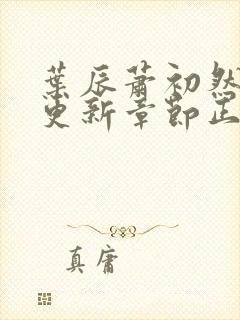 葉辰蕭初然
更新章節正
真庸